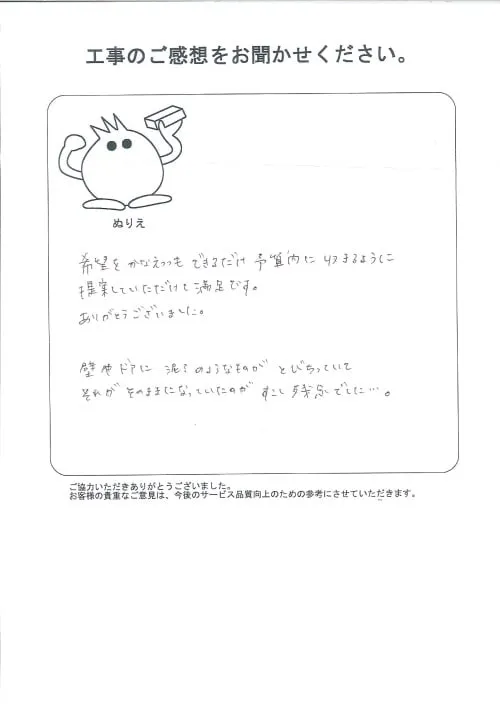 工事のご感想をお聞かせください。
ぬりえ
希望をかなえつつも できるだけ 予算内に収まるように
提案していただけて満足です。
ありがとうございました。
壁やドアに 泥のようなものが とびちっていて
それが そのままになっていたのが すこし残念でした…。
ご協力いただきありがとうございました。
お客様の貴重なご意見は、今後のサービス品質向上のための参考にさせていただきます。